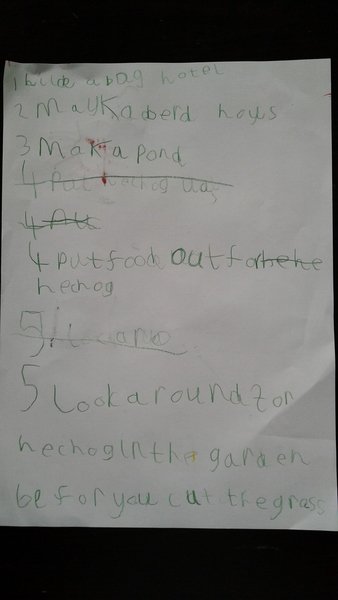 1 hilde a bug hotel
2 Mayk a berd hows
3 Mak a pond
4 Put hechog
4
4 put food out for hehe
hechog
5
5 Look around for
hechog in the garden
be for you cut the grass